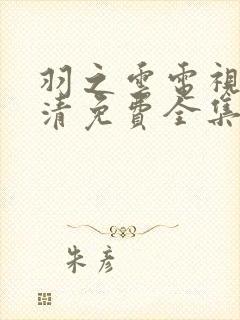 羽之雲電視
清免費全集
朱彥